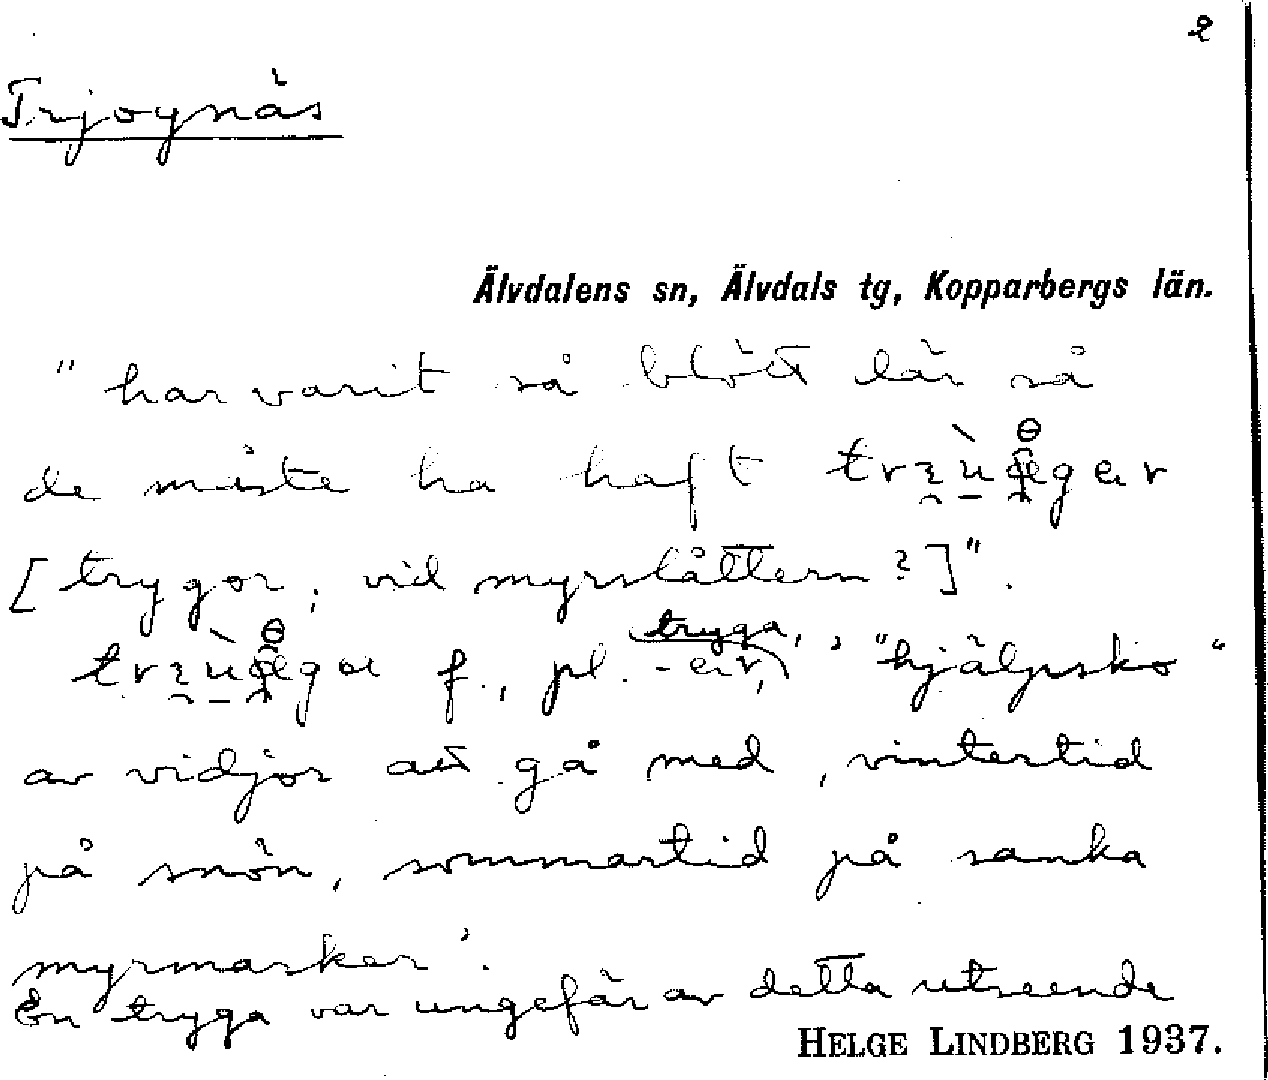 2
Trjoynäs
Älvdalens sn, Älvdals tg, Kopparbergs län.
"har varit så blött där så
de måste ha haft
[trygor, vid myrslåttern?]".
tryga,
f., pl. -ar, "hjälpsko"
av vidjor att gå med, vintertid
på snön, sommartid på sanka
myrmarker'.
En tryga var ungefär av detta utseende
HELGE LINDBERG 1937.